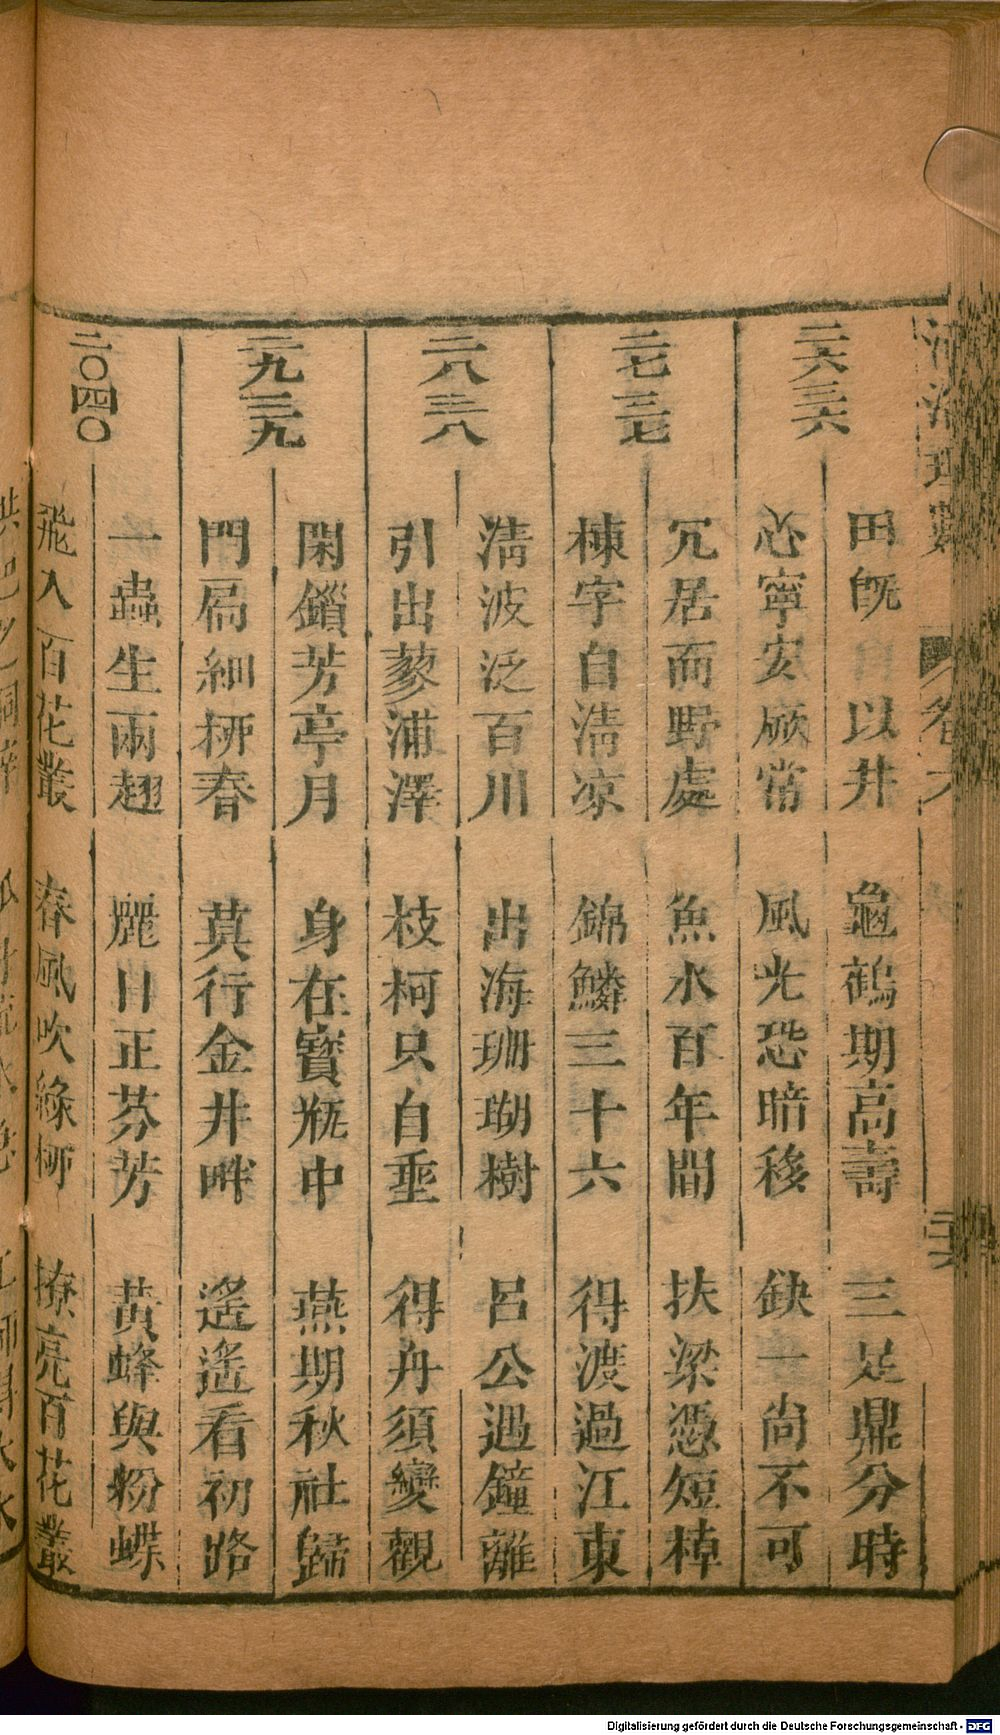 二六三六
田旣以井 龜鶴期高壽 三足鼎分時
心寧安厥常 風光恐暗移 缺一尚不可
二七三七
冗居而野處 魚水百年間 扶梁憑短棹
棟字自淸凉 錦鱗三十六 得渡過江東
二八三八
淸波泛百川 出海珊瑚樹 呂公遇鐘離
引出蓼浦澤 枝柯只自垂 得舟須變觀
二九三九
閑鎻芳亭月 身在寳瓶中 燕期秋社歸
門扃細栁春 莫行金井畔 遥遥看初路
二〇四〇
一蟲生兩翅 麗日正芬芳 黃蜂與粉蝶
飛入百花叢 春風吹綠栁 撩亮百花叢
卷六
二六
Digitalisierung gefördert durch die Deutsche Forschungsgemeinschaft - DFG